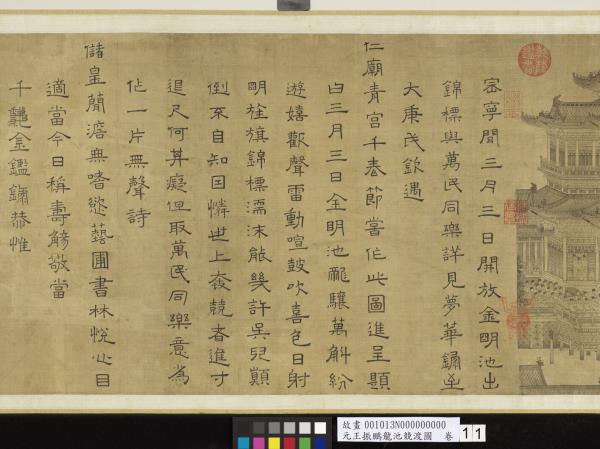 崇寧間三月三日開放金明池出
錦標與萬民同樂詳見夢華錄至
大庚戌欽遇
仁廟青宮千春節嘗作此圖進呈題
曰三月三日金明池龍驤萬斛紛
遊嬉歡聲雷動喧鼓吹喜色日射
明旌旗錦標濡沫能幾許吳兒顛
倒不自知因憐世上奔競者進寸
退尺何其癡但取萬民同樂意為
作一片無聲詩
儲皇簡澹無嗜慾藝圃書林悅心目
適當今日稱壽觴敬當
千齡金鑑錄恭惟
故畫 001013N000000000
元王振鵬龍池競渡圖 卷 11